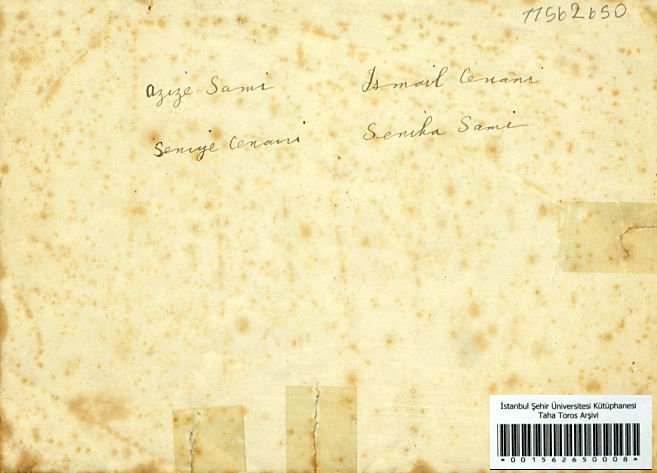 11562650
Azize Sami
İsmail Cenani
Seniye Cenani
Seniha Sami
İstanbul Şehir Üniversitesi Kütüphanesi
Taha Toros Arşivi
*001562650008*